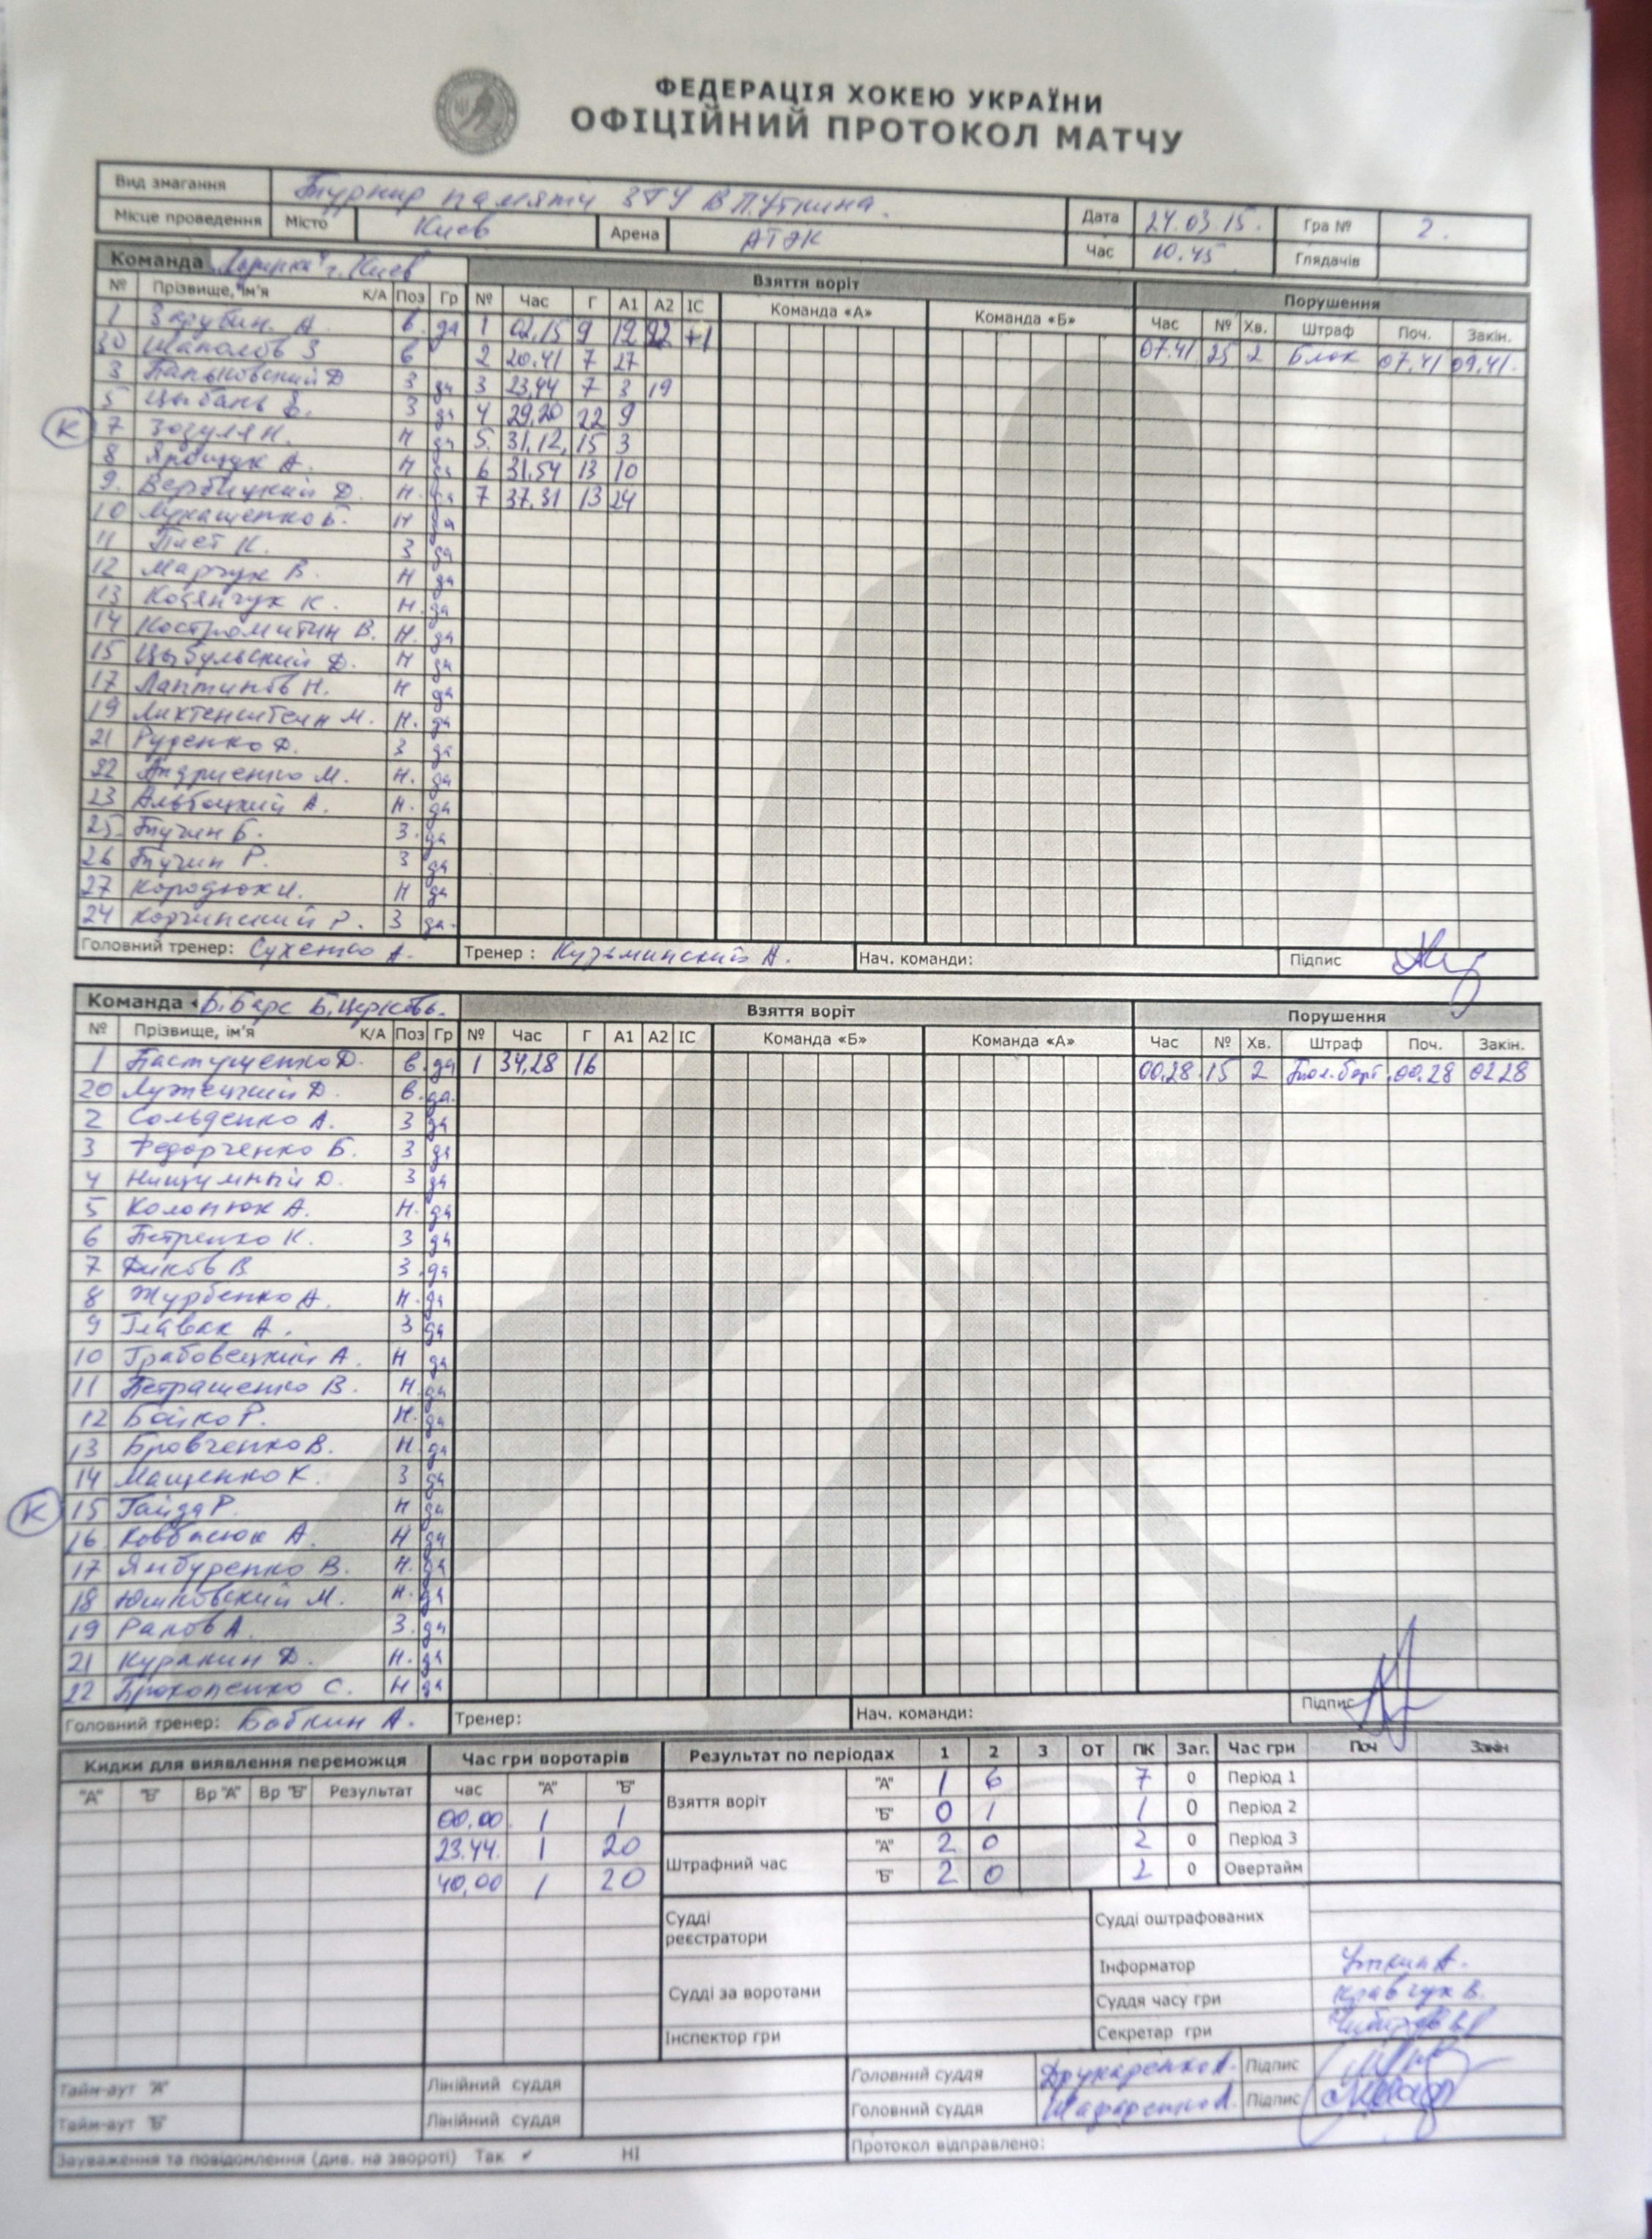 ФЕДЕРАЦІЯ ХОКЕЮ УКРАЇНИ
ОФІЦІЙНИЙ ПРОТОКОЛ МАТЧУ
Вид змагання Турнир памяти ЗТУ В.П.Уткина.
Місце проведення Місто Киев Арена АТЭК Дата 24.03.15. Гра № 2.
Час 10.45 Глядачів
Команда г. Киев Взяття воріт Порушення
№ Прізвище, ім'я К/А Поз Гр № Час Г А1 А2 ІС Команда «А» Команда «Б» Час № Хв. Штраф Поч. Закін.
1 Зарубин. А. в. да 1 02,15 9 19 22 +1 07.41 25 2 Блок 07.41 09.41.
30 Шаполов З в 2 20.41 7 27
3 Д З да 3 23,44 7 3 19
5 Цыбань З да 4 29,20 22 9
К 7 Зозуля Н. Н да 5. 31,12, 15 3
8 А. Н да 6 31,54 13 10
9. Вербицкий Д. Н. да 7 37.31 13 24
10 Лукашенко Б. Н да
11 Пист К. З да
12 Марчук В. Н да
13 Косянчук К. Н. да
14 Костромитин В. Н. да
15 Цыбульский Д. Н да
17 Лаптинов Н. Н да
19 Лихтенштейн М. Н. да
21 Руденко Д. З да
22 Андриенко М. Н. да
23 Альбоцкий А. Н. да
25. Тучин Б. З. да
26 Тучин Р. З да
27 Кородюк И. Н да
24 Корчинский Р. З да.
Головний тренер: Сухенко А. Тренер : Кузьминский А. Нач. команди: Підпис
Команда «Б.Барс Б.Церковь. Взяття воріт Порушення
№ Прізвище, ім'я К/А Поз Гр № Час Г А1 А2 ІС Команда «Б» Команда «А» Час № Хв. Штраф Поч. Закін.
1 Пастушенко Д. в. да 1 34,28 16 00,28 15 2 Тол.борт 00.28 02.28
20 Лужецкий Д. в. да.
2 Сольденко А. З да
3 Федорченко Б. З да
4 Нищимный О. З да
5 Колонюк А. Н. да
6 Петренко К. З да
7 Диков В З. да
8 Журбенко А. Н. да
9 Главак А. З да
10 Грабовецкий А. Н да
11 Петрашенко В. Н. да
12 Бойко Р. Н. да
13 Бровченко В. Н. да
14 Мащенко К. З да
К 15 Гайда Р. Н да
16 Ковбасюк А. Н да
17 Ямбуренко В. Н. да
18 Юшковский М. Н. да
19 Рапов А. З. да
21 Куракин Д. Н. да
22 Прокопенко С. Н да
Головний тренер: Бобкин А. Тренер: Нач. команди: Підпис
Кидки для виявлення переможця Час гри воротарів Результат по періодах 1 2 3 ОТ ПК Заг. Час гри Поч Закін
"А" "Б" Вр "А" Вр "Б" Результат час "А" "Б" Взяття воріт "А" 1 6 7 0 Період 1
00,00 1 1 "Б" 0 1 1 0 Період 2
23.44. 1 20 Штрафний час "А" 2 0 2 0 Період 3
40,00 1 20 "Б" 2 0 2 0 Овертайм
Судді реєстратори Судді оштрафованих
Інформатор Уткин А.
Судді за воротами Суддя часу гри Кравчук В.
Інспектор гри Секретар гри
Тайм-аут "А" Лінійний суддя Головний суддя Друкаренко А. Підпис
Тайм-аут "Б" Лінійний суддя Головний суддя Шафаренко А. Підпис
Зауваження та повідомлення (див. на звороті) Так ✓ НІ Протокол відправлено: